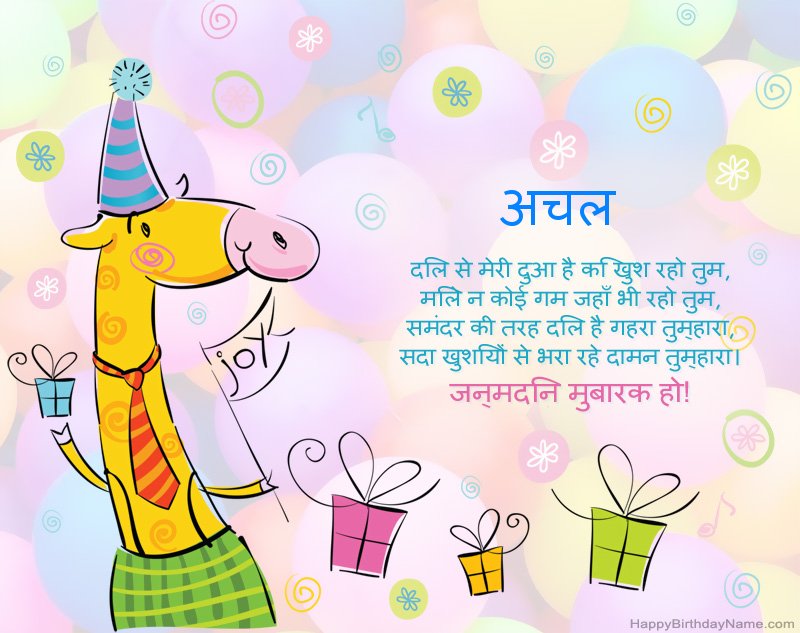 joy
अचल
दलि से मेरी दुआ है क िखुश रहो तुम,
मलिे न कोई गम जहाँ भी रहो तुम,
समंदर की तरह दलि है गहरा तुम्हारा,
सदा खुशयिों से भरा रहे दामन तुम्हारा।
जन्मदनि मुबारक हो!
HappyBirthdayName.com